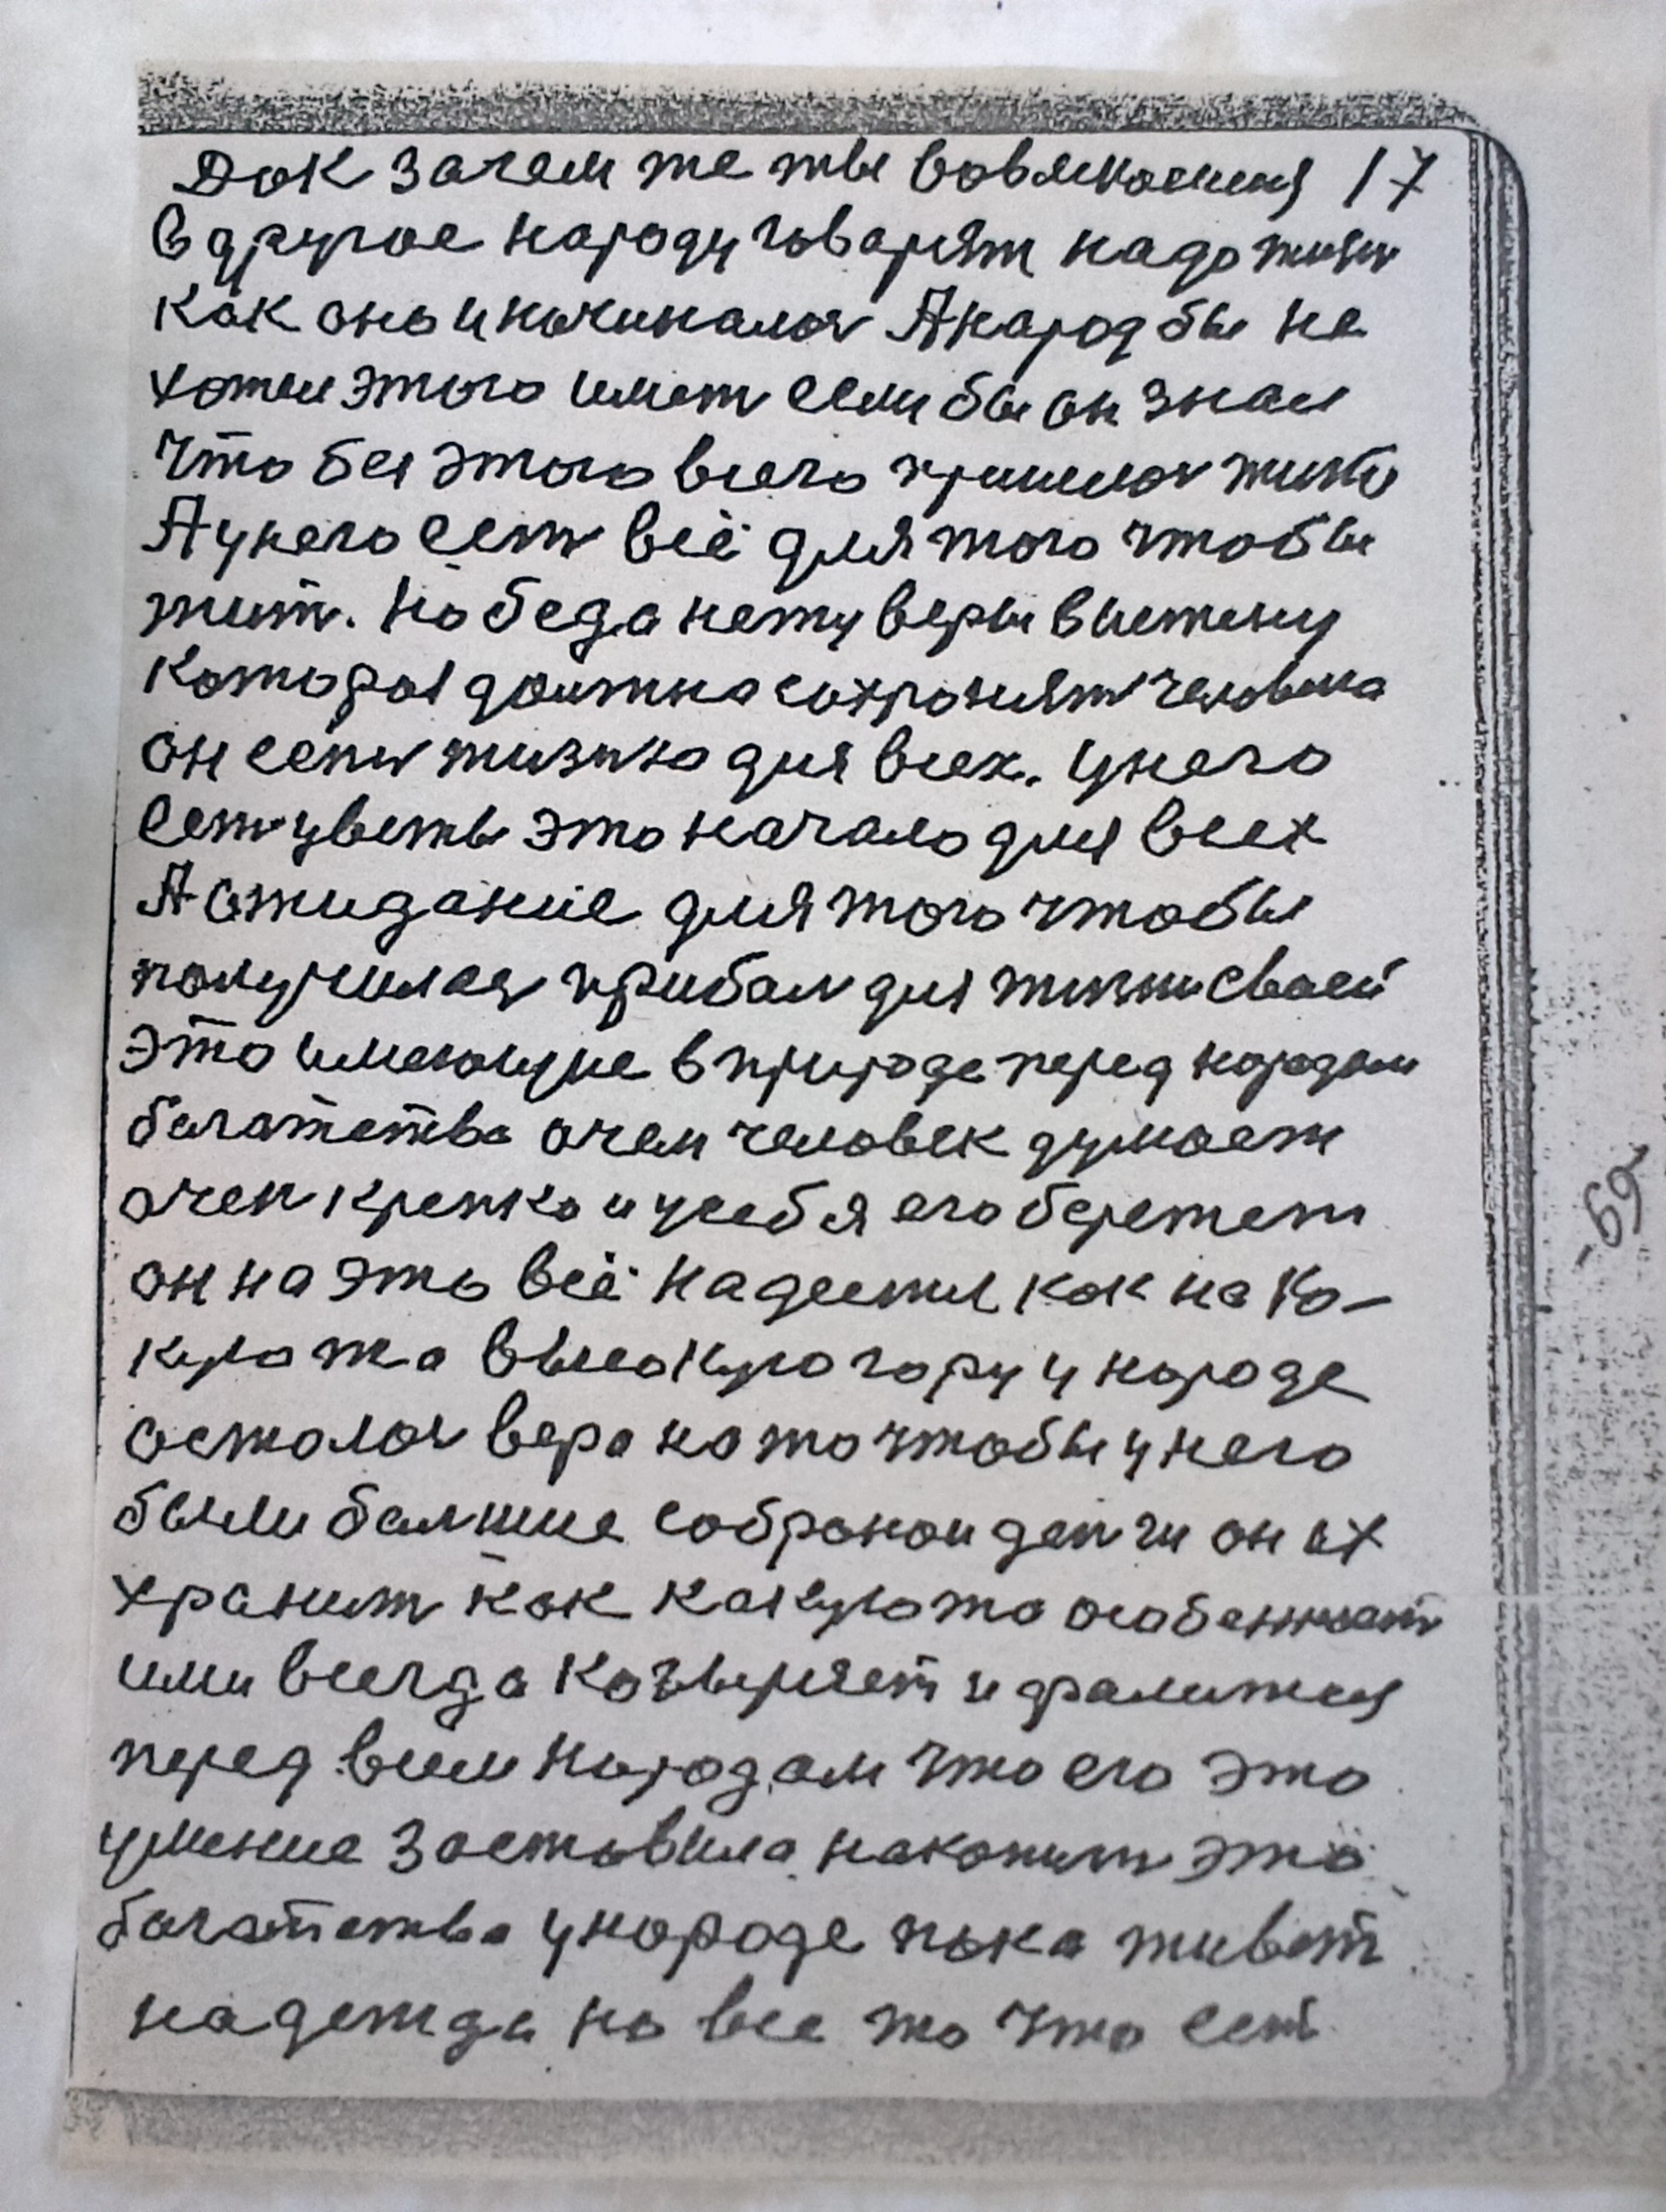 Док зачем же ты вовлекаешся 17
в другое народу говарят надо жить
как оно и начиналос А народ бы не
хотел этого имет если бы он знал
что без этого всего пришлос жить
А у него ест всё для того чтобы
жит. Но беда нету веры в истену
которая должна сохронят человека
он ест жизню для всех. у него
ест цветы это начало для всех
А ожидание для того чтобы
получилас прибал для жизни своей
это имеющие в природе перед народом
багатства о чем человек думает
очен крепко и у себя его бережет
он на это всё надеетця как на ка-
куюта высокую гору у народе
осталос вера на то чтобы у него
были балшие собраной денги он их
хранит как какуюта особенност
ими всегда козыряет и фалитця
перед всем народам что его это
умение заставила накопит это
багатства у народе пока живет
надежда на все то что ест
-69-